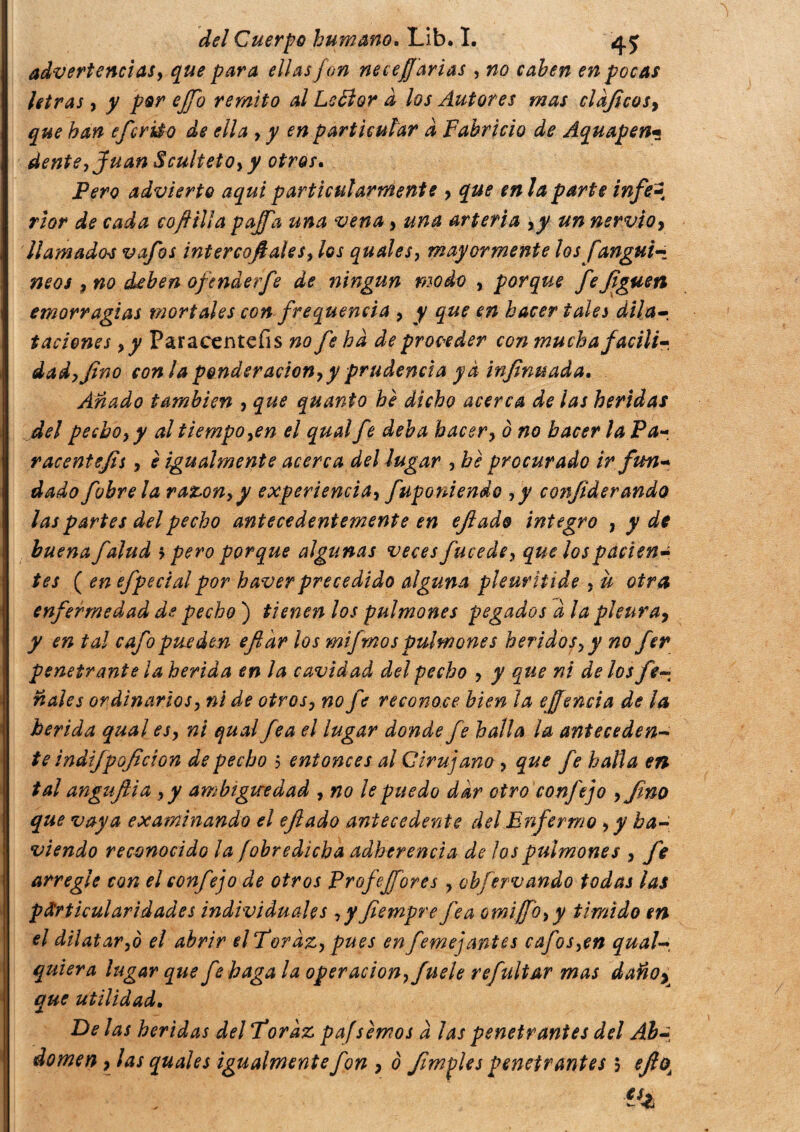 del Cuerpo humano. Lib. I. 45
advertencias, que para ellas son necessarias , no caben en pocas
letras , y por esso remito al Lector à los Autores mas clàsicos,
que han escrito de ella , y en particular à Fabricio de Aquapen-
dente, Juan Sculteto, y otros.
Pero advierto aqui particularmente , que en la parte infe-
rior de cada costilla passa una vena , una arteria , y un nervio,
llamados vasos intercostales, los quales, mayormente los sangui-
neos , no deben ofenderse de ningun modo , porque se siguen
emorragias mortales con frequencia , y que en hacer tales dila-
taciones , y Paracentesis no se hà de proceder con mucha facili-
dad, sino con la ponderacion, y prudencia yà insinuada.
Añado tambien , que quanto hè dicho acerca de las heridas
del pecho, y al tiempo, en el qual se deba hacer, ò no hacer la Pa-
racentesis , è igualmente acerca del lugar , hè procurado ir fun-
dado sobre la razon, y experiencia, suponiendo , y considerando
las partes del pecho antecedentemente en estado integro , y de
buena salud ; pero porque algunas veces sucede, que los pacien-
tes ( en especial por haver precedido alguna pleuritide , ù otra
enfermedad de pecho ) tienen los pulmones pegados à la pleura,
y en tal caso pueden estàr los mismos pulmones heridos, y no ser
penetrante la herida en la cavidad del pecho , y que ni de los se-
ñales ordinarios, ni de otros, no se reconoce bien la essencia de la
herida qual es, ni qual sea el lugar donde se halla la anteceden-
te indisposicion de pecho ; entonces al Cirujano , que se halla en
tal angustia , y ambiguedad , no le puedo dàr otro consejo , sino
que vaya examinando el estado antecedente del Enfermo , y ha-
viendo reconocido la sobredicha adherencia de los pulmones , se
arregle con el consejo de otros Professores , observando todas las
particularidades individuales , y siempre sea omisso, y timido en
el dilatar, ò el abrir el Toràz, pues en semejantes casos, en qual-
quiera lugar que se haga la operacion, suele resultar mas daño,
que utilidad.
De las heridas del Toràz passèmos à las penetrantes del Ab-
domen , las quales igualmente son , ò simples penetrantes ; esto
es,